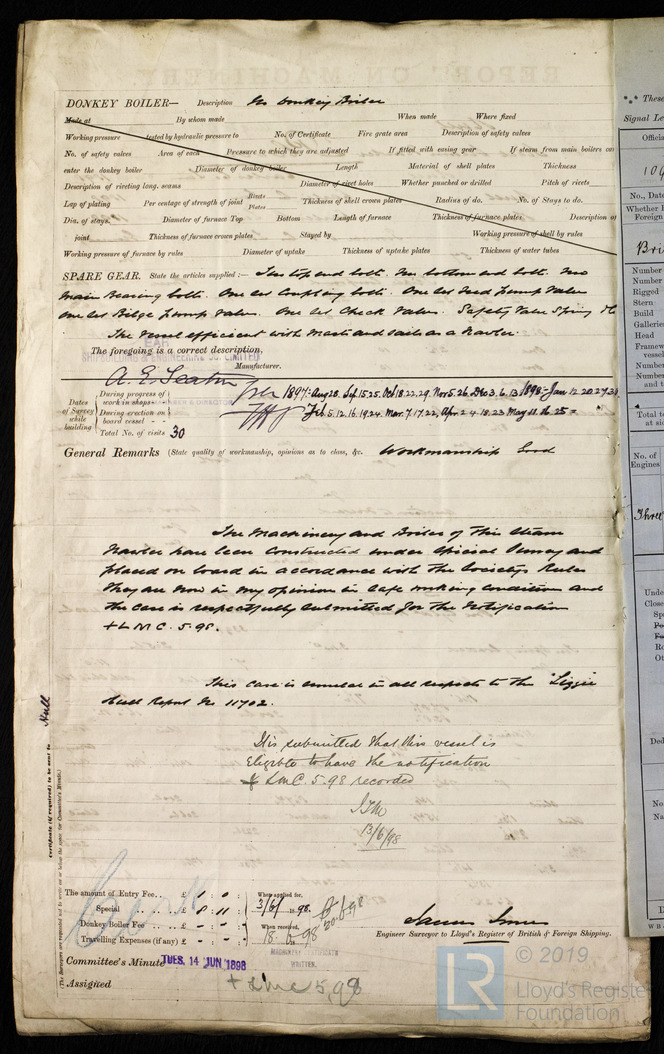 DONKEY BOILER— Description No Donkey Boiler
Made at By whom made When made Where fixed
Working pressure tested by hydraulic pressure to No. of Certificate Fire grate area Description of safety valves
No. of safety valves Area of each Pressure to which they are adjusted If fitted with easing gear If steam from main boilers can
enter the donkey boiler Diameter of donkey boiler Length Material of shell plates Thickness
Description of riveting long. seams Diameter of rivet holes Whether punched or drilled Pitch of rivets
Lap of plating Per centage of strength of joint Rivets Plates Thickness of shell crown plates Radius of do. No. of Stays to do.
Dia. of stays. Diameter of furnace Top Bottom Length of furnace Thickness of furnace plates Description of
joint Thickness of furnace crown plates Stayed by Working pressure of shell by rules
Working pressure of furnace by rules Diameter of uptake Thickness of uptake plates Thickness of water tubes
SPARE GEAR. State the articles supplied:— Two top end bolts. Two bottom end bolts. Two
main Bearing bolts. One set Coupling bolts. One set Feed pump Valves
One set Bilge pump Valves. One set Check Valves. Safety Valve Spring &c
The Vessel efficient with Masts and sails as a Trawler.
The foregoing is a correct description,
SHIPBUILDING & ENGINEERING CO. LIMITED
A. E. Seaton Manufacturer.
Dates of Survey while building
During progress of work in shops - - 1897:- Aug 28. Sep 15.25. Oct 18.22.29. Nov 5.26. Dec 3.6.13. 1898:- Jan 12.20.27.31
During erection on board vessel - - Feb 5.12.16.19.24. Mar. 7.17.22. Apr. 2.4.18.23 May
Total No. of visits 30
General Remarks (State quality of workmanship, opinions as to class, &c. Workmanship Good
The Machinery and Boiler of this Steam
Trawler have been constructed under Special Survey and
placed on board in accordance with the Society's Rules
they are now in my opinion in safe working condition and
the case is respectfully submitted for the Notification
+ L M C. 5.98.
This case is similar in all respects to the "Lizzie
Hull Report No 11702.
It is submitted that this vessel is
eligible to have the notification
+ LMC 5.98 recorded
13/6/98
Hull
Certificate (if required) to be sent to
(The Surveyors are requested not to write on or below the space for Committee's Minute.)
The amount of Entry Fee.. £ 1 : 0 : When applied for,
Special .. .. .. £ 8 : 11 : 3/6/1898.
Donkey Boiler Fee .. .. £ - : - : When received,
Travelling Expenses (if any) £ - : - : 18. 6. 98
James
Engineer Surveyor to Lloyd's Register of British & Foreign Shipping.
Committee's Minute TUES. 14 JUN 1898
MACHINERY CERTIFICATE
WRITTEN.
Assigned + LMC 5,98
© 2019
LR
Lloyd's Register
Foundation
*** These
Signal Le
Official
No., Date
Whether B
Foreign
Number
Number
Rigged
Stern
Build
Galleries
Head
Framew
vessel
Number
Number
and t
Total to
at sid
No. of
Engines
Three
Unde
Close
Ded
No